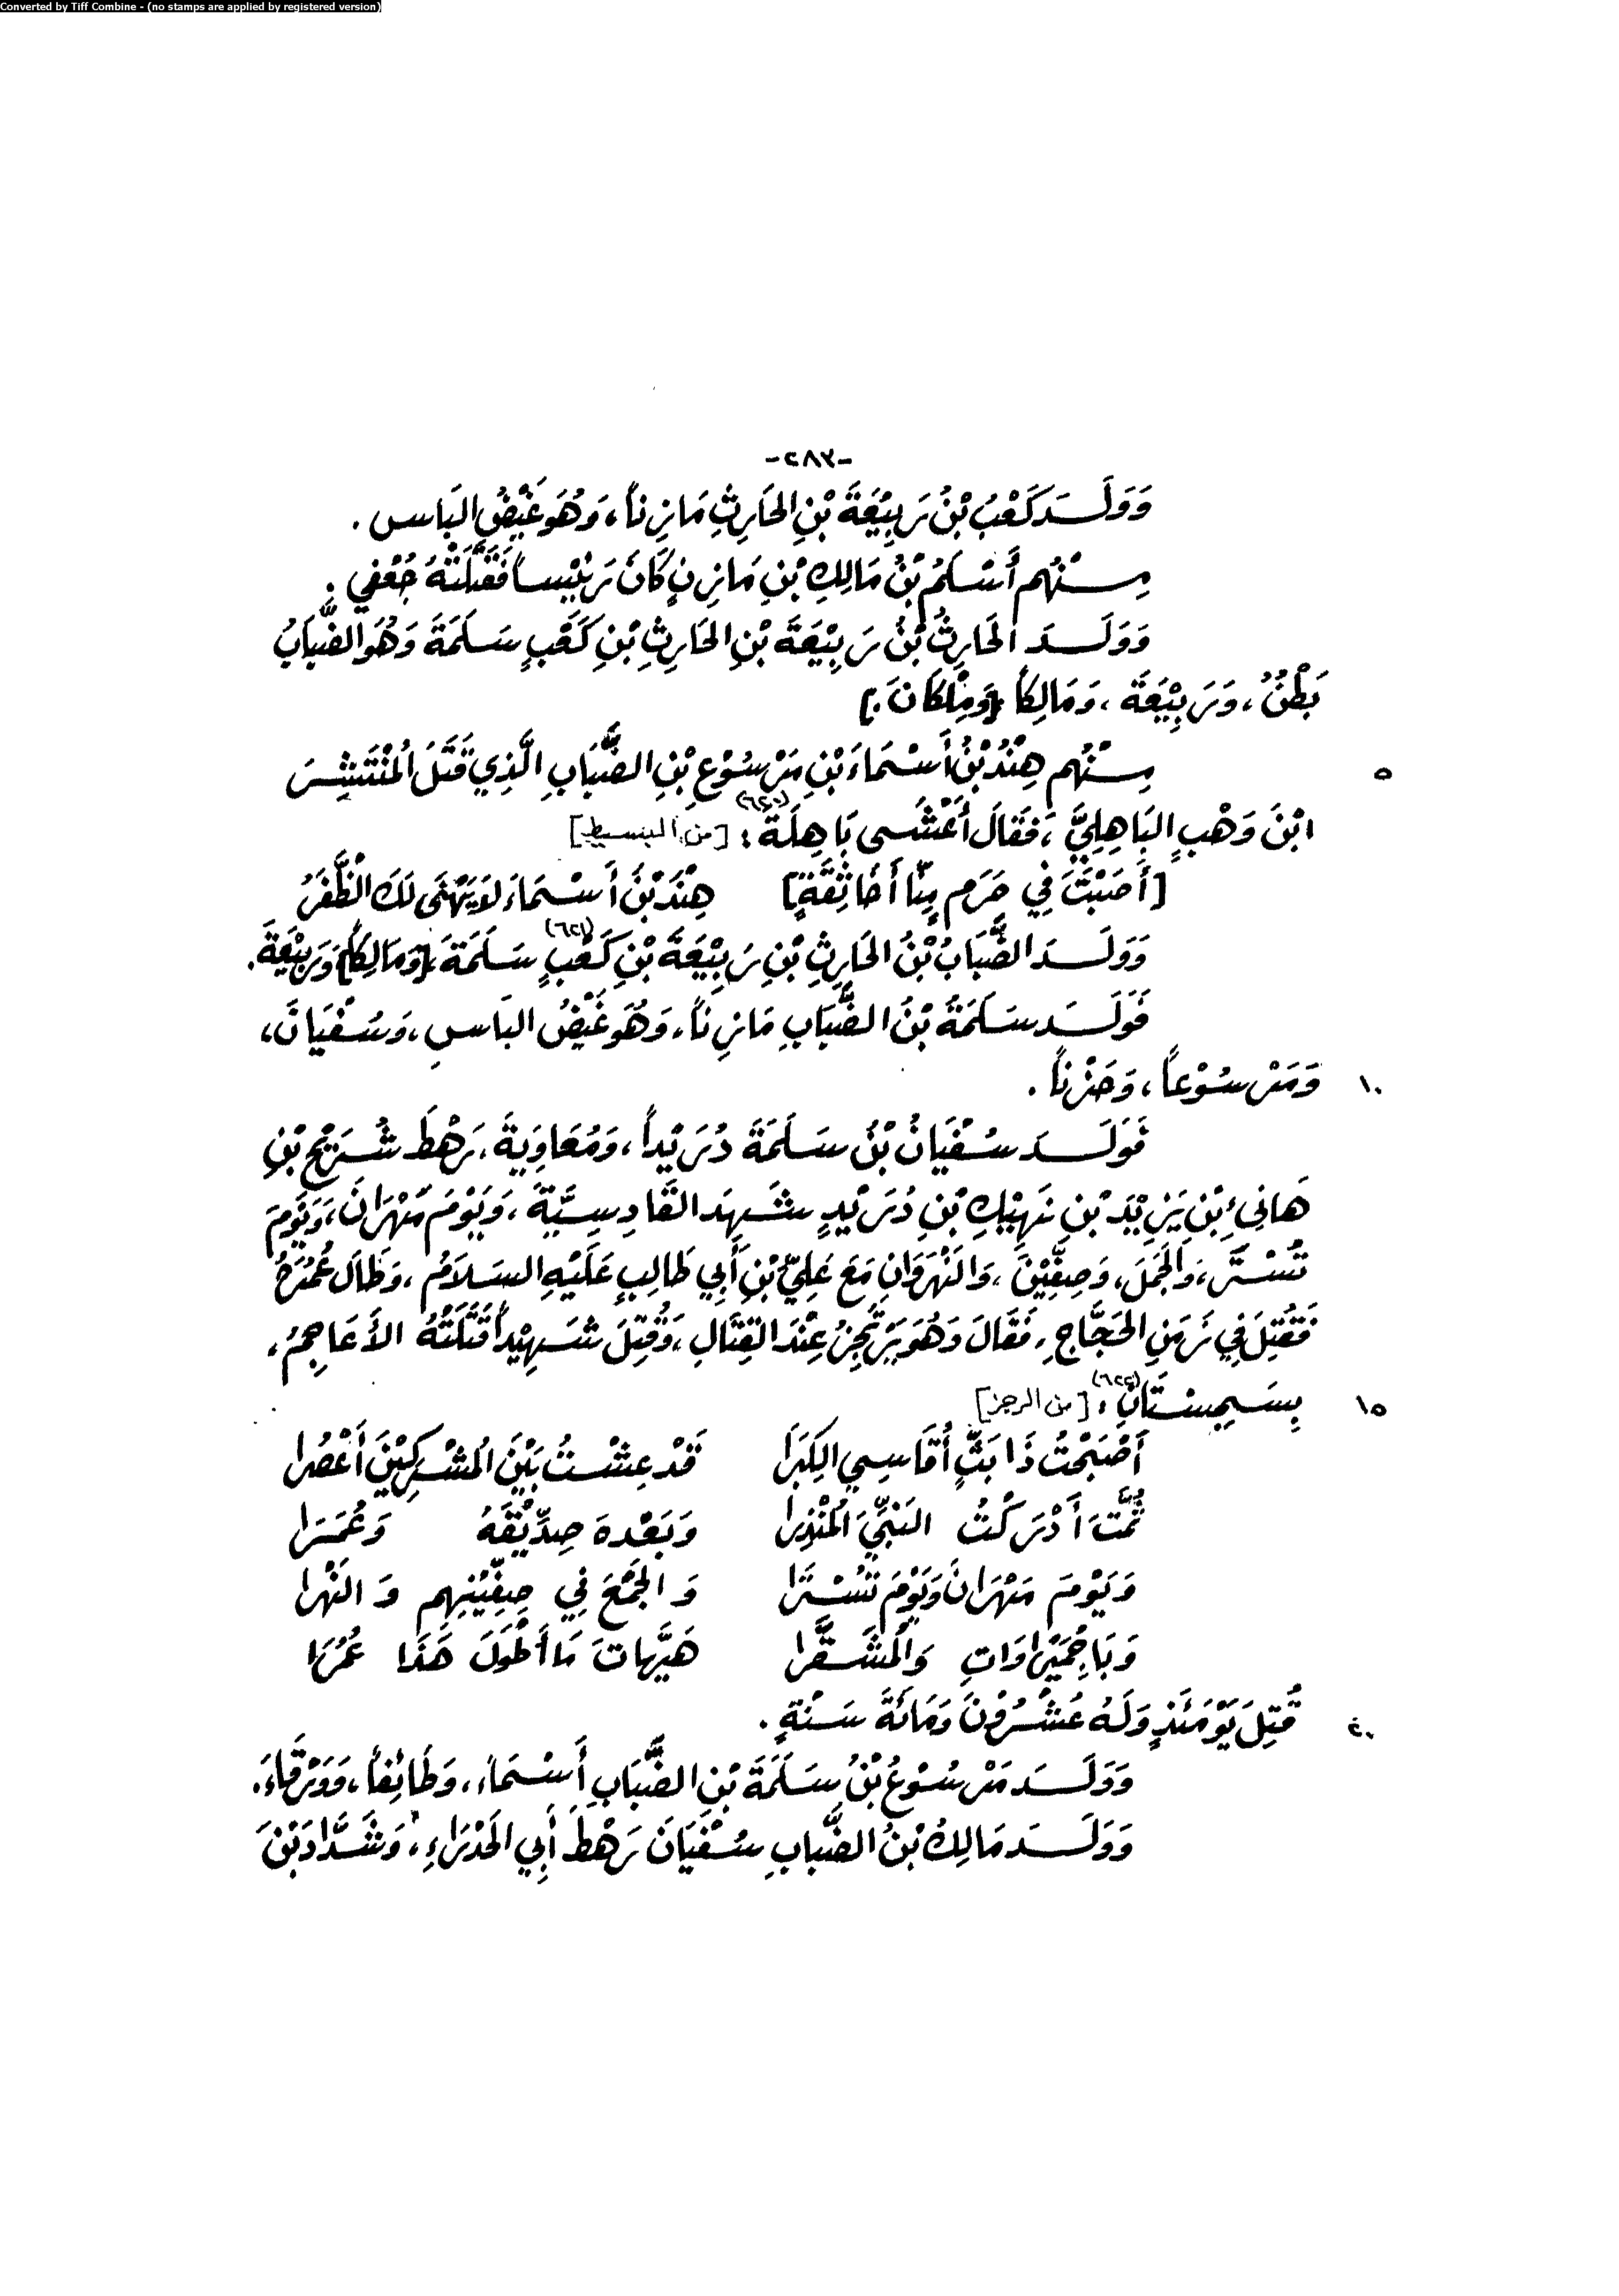 Converted by Tiff Combine - (no stamps are applied by registered version)
-٢٨٧-
وَوَلَـدَ كَعْبُ بْنُ رَبِيْعَةَ بْنِ الحَارِثِ مَازِناً، وَهُوَ غَيْضُ البَاسِ .
مِـنْهُم أَسْلَمُ بْنُ مَالِكِ بْنِ مَازِنٍ كَانَ رَئِيْساً فَقَتَلَتْهُ جُعْفِي .
وَوَلَـدَ الحَارِثُ بْنُ رَبِيْعَةَ بْنِ الحَارِثِ بْنِ كَعْبٍ سَلَمَةَ وَهُوَ الضِّبَابُ
بَطْنٌ، وَرَبِيْعَةَ، وَمَالِكاً [وَمِلْكَانَ.]
مِـنْهُم هِنْدُ بْنُ أَسْمَاءَ بْنِ مَرْسُوْعِ بْنِ الضِّبَابِ الَّذِي قَتَلَ المُنْتَشِرَ
٥
ابْنَ وَهْبٍ البَاهِلِيَّ، فَقَالَ أَعْشَى بَاهِلَةَ(٦٢٠): [من البسيط]
[أَصَبْتَ فِي حَرَمٍ مِنَّا أَخَا ثِقَةٍ] هِنْدَ بْنَ أَسْمَاءَ لَا يَهْنَى لَكَ الظَّفَرُ
وَوَلَـدَ الضِّبَابُ بْنُ الحَارِثِ بْنِ رَبِيْعَةَ بْنِ كَعْبٍ(٦٢١) سَلَمَةَ، [وَمَالِكاً] وَرَبِيْعَةَ.
فَوَلَـدَ سَلَمَةُ بْنُ الضِّبَابِ مَازِناً، وَهُوَ غَيْضُ البَاسِ، وَسُفْيَانَ،
وَمَرْسُوْعاً، وَحَزْناً .
١٠
فَوَلَـدَ سُفْيَانُ بْنُ سَلَمَةَ دُرَيْداً، وَمُعَاوِيَةَ، رَهْطَ شُرَيْحِ بْنِ
هَانِئِ بْنِ يَزِيْدَ بْنِ نَهِيْكِ بْنِ دُرَيْدٍ شَهِدَ القَادِسِيَّةَ، وَيَوْمَ مَهْرَانَ، وَيَوْمَ
تُسْتَرَ، وَالجَمَلَ، وَصِفِّيْنَ، وَالنَهْرَوَانِ مَعَ عَلِيِّ بْنِ أَبِي طَالِبٍ عَلَيْهِ السَلَامُ، وَطَالَ عُمُرُهُ
فَقُتِلَ فِي زَمَنِ الحَجَّاجِ، فَقَالَ وَهُوَ يَرْتَجِزُ عِنْدَ القِتَالِ، وَقُتِلَ شَهِيْداً قَتَلَتْهُ الأَعَاجِمُ،
بِسَجِسْتَانَ(٦٢٢): [من الرجز]
١٥
أَصْبَحْتُ ذَا بَثٍّ أُقَاسِي الكِبَرَا قَدْ عِشْتُ بَيْنَ المُشْرِكِيْنَ أَعْصُرَا
ثُمَّتَ أَدْرَكْتُ النَبِيَّ المُنْذِرَا وَبَعْدهَ صِدِّيْقَهُ وَعُمَرَا
وَيَوْمَ مَهْرَانَ وَيَوْمَ تُسْتَرَا وَالجَمْعَ فِي صِفِّيْنِهِم وَالنَهَرَا
وَبَا جُمَيْرَاوَاتِ وَالمُشَقَّرَا هَيَّهاتَ مَا أَطْوَلَ هَذَا عُمُرَا
قُتِلَ يَوْمَئِذٍ وَلَهُ عُشْرُوْنَ وَمَائَةَ سَنَةٍ .
٢٠
وَوَلَـدَ مَرْسُوْعُ بْنُ سَلَمَةَ بْنِ الضِّبَابِ أَسْمَاءَ، وَطَائِفاً، وَوَرْقَاءَ.
وَوَلَـدَ مَالِكُ بْنُ الضِّبابِ سُفْيَانَ رَهْطَ أَبِي الحَدْرَاءِ، وَشَدَّادَ بْنَ